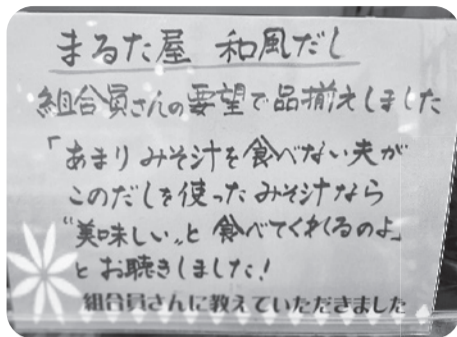 まるた屋 和風だし
組合員さんの要望で品揃えしました
「あまりみそ汁を食べない夫が
このだしを使ったみそ汁なら
“美味しい„と食べてくれるのよ」
とお聴きしました!
組合員さんに教えていただきました